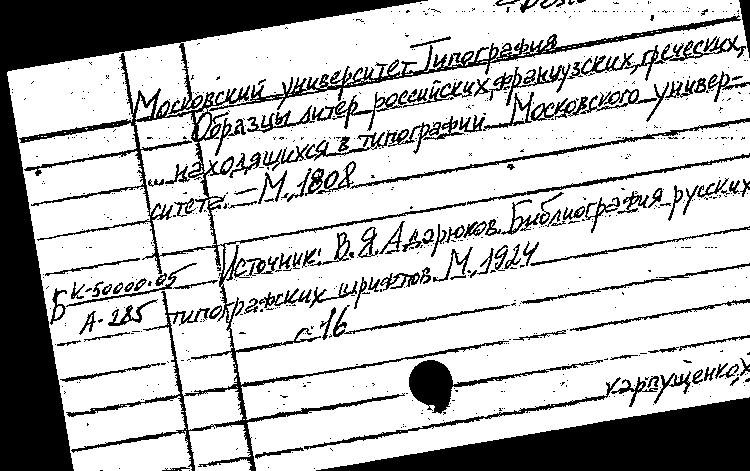 Московский университет. Типография
Образцы литер российских, французских, греческих,
... находящихся в типографии Московского универ-
ситета. — М., 1808
Источник: В.Я. Адарюков. Библиография русских
Б К-50000-05 типографских шрифтов. М., 1924
А-285
с. 16